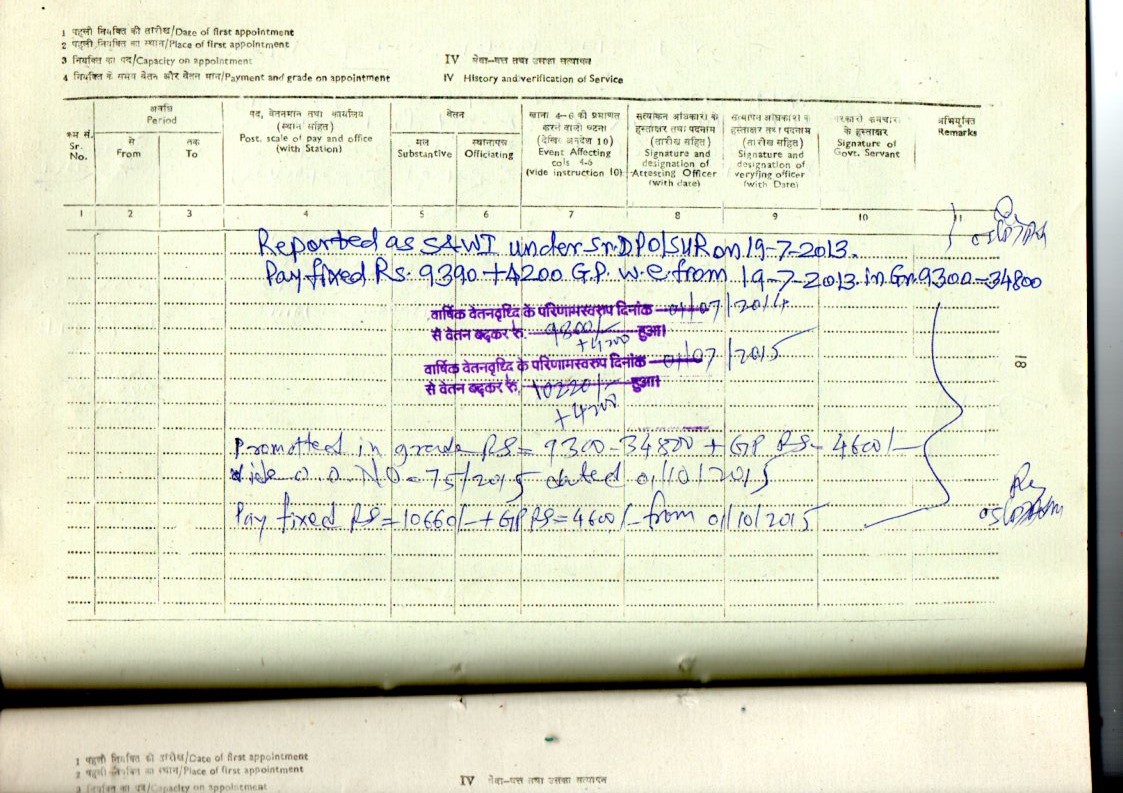 1 पहली नियुक्ति की तारीख/Date of first appointment
2 पहली नियुक्ति का स्थान/Place of first appointment
3 नियुक्ति का पद/Capacity on appointment
4 नियुक्ति के समय वेतन और वेतन मान/Payment and grade on appointment
IV सेवा-वृत्त तथा उसका सत्यापन
IV History and verification of Service
क्रम सं.
Sr.
No.
अवधि
Period
से
From
तक
To
पद, वेतनमान तथा कार्यालय
(स्थान सहित)
Post, scale of pay and office
(with Station)
वेतन
मूल
Substantive
स्थानापन्न
Officiating
खाना 4-6 को प्रभावित
करने वाली घटना
(देखिए अनुदेश 10)
Event Affecting
cols 4-6
(vide instruction 10)
सत्यांकन अधिकारी के
हस्ताक्षर तथा पदनाम
(तारीख सहित)
Signature and
designation of
Attesting Officer
(with date)
सत्यापन अधिकारी के
हस्ताक्षर तथा पदनाम
(तारीख सहित)
Signature and
designation of
veryfing officer
(with Date)
सरकारी कर्मचारी
के हस्ताक्षर
Signature of
Govt. Servant
अभियुक्ति
Remarks
1 2 3 4 5 6 7 8 9 10 11
Reported as S&WI under Sr.DPO/SUR on 19-7-2013.
Pay fixed Rs. 9390 +4200 G.P. w.e.from 19-7-2013. in Gr. 9300-34800
वार्षिक वेतनवृध्दि के परिणामस्वरुप दिनांक 01/07/2014
से वेतन बढ़कर रु. 9800/- हुआ।
+4200
वार्षिक वेतनवृध्दि के परिणामस्वरुप दिनांक 01/07/2015
से वेतन बढ़कर रु. 10220/- हुआ।
+4200
18
Promotted in grade RS= 9300-34800 + GP RS- 4600/-
vide o.o. NO- 75/2015 dated 01/10/2015
Pay fixed RS=10660/- + GP RS=4600/- from 01/10/2015
1 पहली नियुक्ति की तारीख/Date of first appointment
2 पहली नियुक्ति का स्थान/Place of first appointment
3 नियुक्ति का पद/Capacity on appointment
IV सेवा-वृत्त तथा उसका सत्यापन